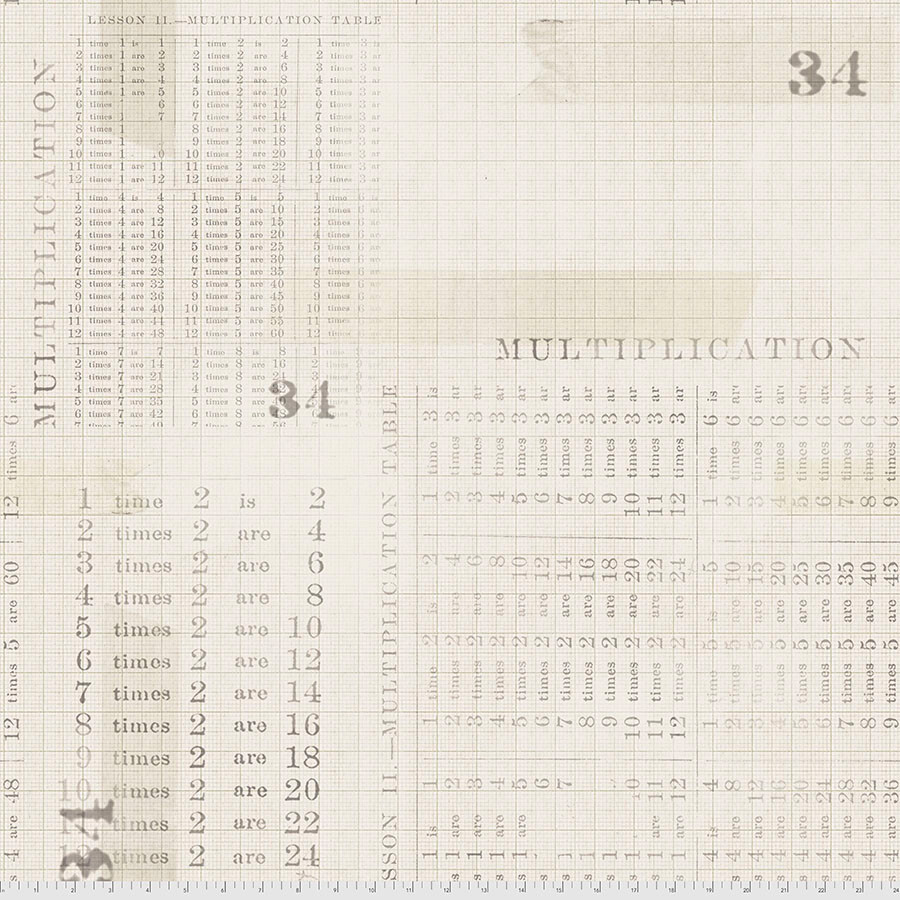 LESSON II.—MULTIPLICATION TABLE
1 time 1 is 1 1 time 2 is 2 1 time 3 is
2 times 1 are 2 2 times 2 are 4 2 times 3 ar
3 times 1 are 3 3 times 2 are 6 3 times 3 ar
4 times 1 are 4 4 times 2 are 8 4 times 3 ar
5 times 1 are 5 5 times 2 are 10 5 times 3 ar
6 times 6 6 times 2 are 12 6 times 3 ar
7 times 1 7 7 times 2 are 14 7 times 3 ar
8 times 1 8 times 2 are 16 8 times 3 ar
9 times 1 9 times 2 are 18 9 times 3 ar
10 times 1 10 times 2 are 20 10 times 3 ar
11 times 1 are 11 11 times 2 are 22 11 times 3 ar
12 times 1 are 12 12 times 2 are 24 12 times 3 ar
1 time 4 is 4 1 time 5 is 5 1 time 6 is
2 times 4 are 8 2 times 5 are 10 2 times 6 ar
3 times 4 are 12 3 times 5 are 15 3 times 6 ar
4 times 4 are 16 4 times 5 are 20 4 times 6 ar
5 times 4 are 20 5 times 5 are 25 5 times 6 ar
6 times 4 are 24 6 times 5 are 30 6 times 6 ar
7 times 4 are 28 7 times 5 are 35 7 times 6 ar
8 times 4 are 32 8 times 5 are 40 8 times 6 ar
9 times 4 are 36 9 times 5 are 45 9 times 6
10 times 4 are 40 10 times 5 are 50 10 times 6
11 times 4 are 44 11 times 5 are 55 11 times
12 times 4 are 48 12 times 5 are 60 12 times
1 time 7 is 7 1 time 8 is 8 1
2 times 7 are 14 2 times 8 are 16 2
3 times 7 are 21 3 times 8 are 24
4 times 7 are 28 4 times 8 are
5 times 7 are 35 5 times 8 are
6 times 7 are 42 6 times 8 are
MULTIPLICATION
34
34
MULTIPLICATION
1 time 2 is 2
2 times 2 are 4
3 times 2 are 6
4 times 2 are 8
5 times 2 are 10
6 times 2 are 12
7 times 2 are 14
8 times 2 are 16
9 times 2 are 18
10 times 2 are 20
times 2 are 22
times 2 are 24
34
4 are 48 12 times 5 are 60 12 times 6 ar
SSON II.—MULTIPLICATION TABLE
1 is 1 1 time 2 is 2 1 time 3 is
1 are 2 2 times 2 are 4 2 times 3 ar
1 are 3 3 times 2 are 6 3 times 3 ar
1 are 4 4 times 2 are 8 4 times 3 ar
1 are 5 5 times 2 are 10 5 times 3 ar
6 6 times 2 are 12 6 times 3 ar
1 7 7 times 2 are 14 7 times 3 ar
1 8 times 2 are 16 8 times 3 ar
1 9 times 2 are 18 9 times 3 ar
1 10 times 2 are 20 10 times 3 ar
1 are 11 11 times 2 are 22 11 times 3 ar
1 are 12 12 times 2 are 24 12 times 3 ar
4 is 4 1 time 5 is 5 1 time 6 is
4 are 8 2 times 5 are 10 2 times 6 ar
4 are 12 3 times 5 are 15 3 times 6 ar
4 are 16 4 times 5 are 20 4 times 6 ar
4 are 20 5 times 5 are 25 5 times 6 ar
4 are 24 6 times 5 are 30 6 times 6 ar
4 are 28 7 times 5 are 35 7 times 6 ar
4 are 32 8 times 5 are 40 8 times 6 ar
4 are 36 9 times 5 are 45 9 times 6 ar
1 2 3 4 5 6 7 8 9 10 11 12 13 14 15 16 17 18 19 20 21 22 23 24